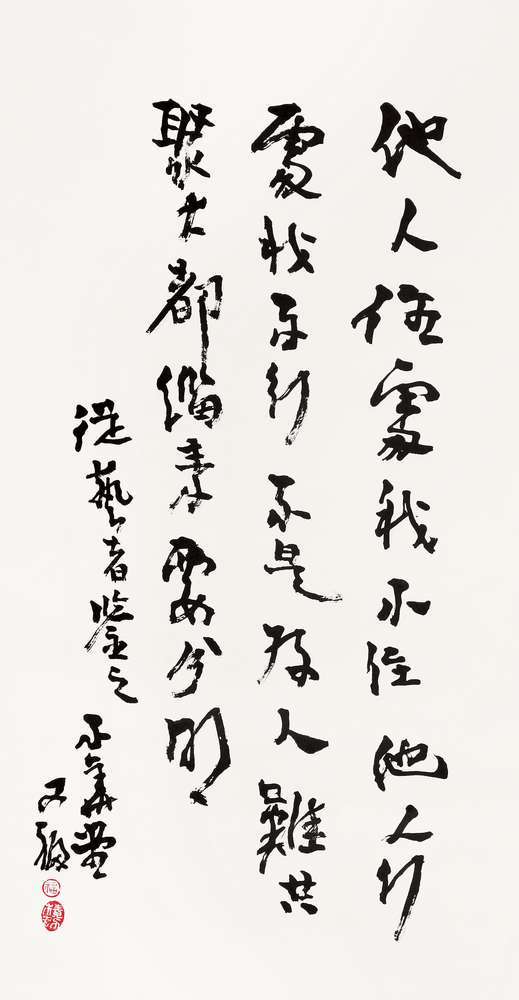 他人住處我不住他人行
處我不行不是人難共
聚大都緇素要分明
從藝者鑒之